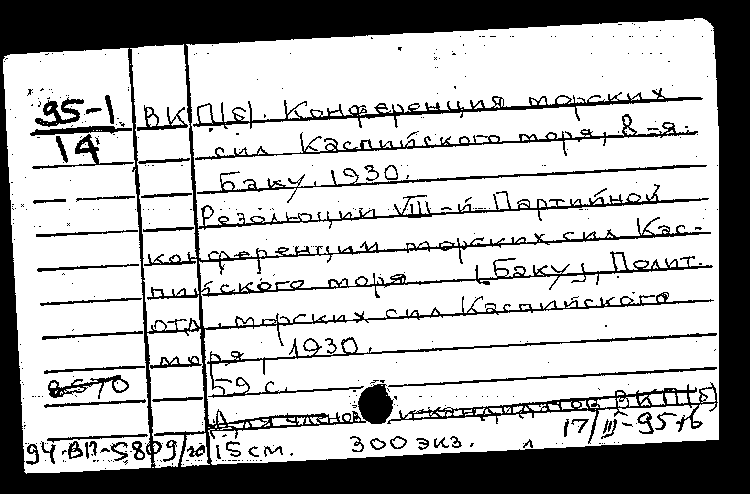 95-1
14
ВКП(б). Конференция морских
сил Каспийского моря, 8-я.
Баку. 1930.
Резолюции VIII-й Партийной
конференции морских сил Кас-
пийского моря. [Баку], Полит.
отд. морских сил Каспийского
моря, 1930.
59 с.
(Для членов и кандидатов ВКП(б)
17/III-95
94-ВП-5809/20 15 см. 300 экз.